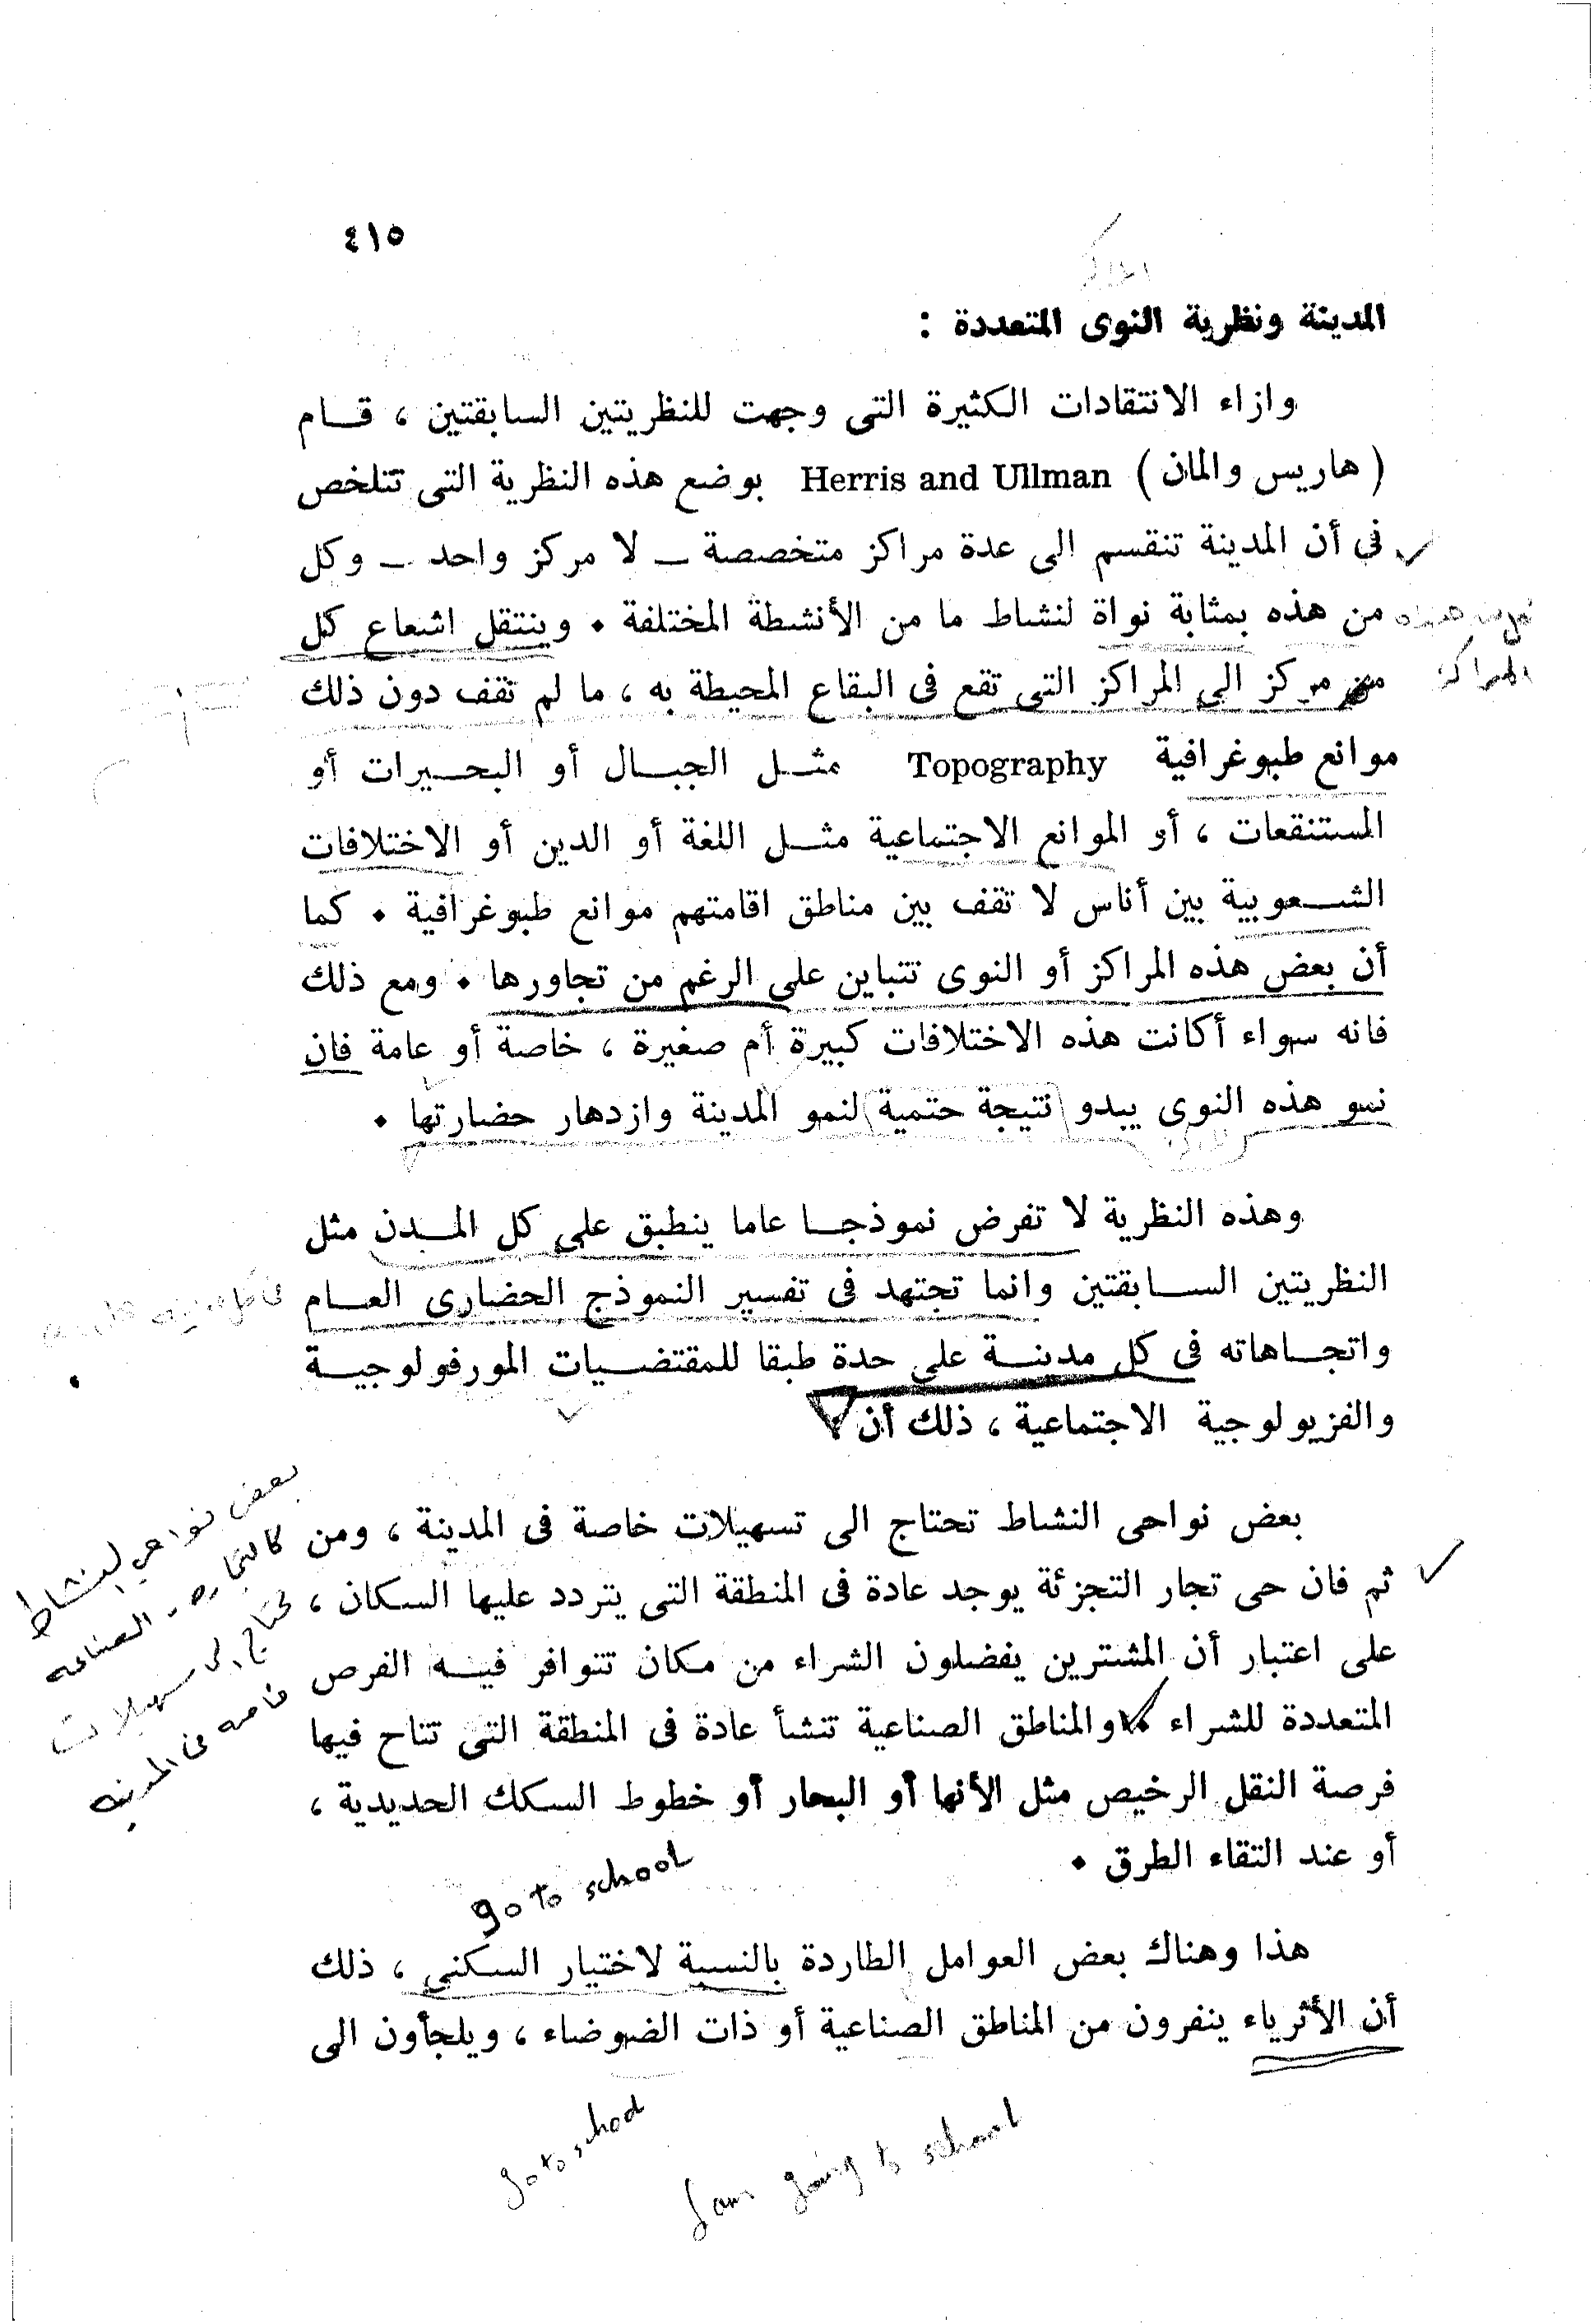 ٤١٥
المدينة ونظرية النوى المتعددة :
وازاء الانتقادات الكثيرة التى وجهت للنظريتين السابقتين ، قــام
( هاريس والمان ) Herris and Ullman بوضع هذه النظرية التى تتلخص
فى أن المدينة تنقسم الى عدة مراكز متخصصة ــ لا مركز واحد ــ وكل
من هذه بمثابة نواة لنشاط ما من الأنشطة المختلفة . وينتقل اشعاع كل
من مركز الى المراكز التى تقع فى البقاع المحيطة به ، ما لم تقف دون ذلك
موانع طبوغرافية Topography مثــل الجبــال أو البحــيرات أو
المستنقعات ، أو الموانع الاجتماعية مثــل اللغة أو الدين أو الاختلافات
الشــعوبية بين أناس لا تقف بين مناطق اقامتهم موانع طبوغرافية . كما
أن بعض هذه المراكز أو النوى تتباين على الرغم من تجاورها . ومع ذلك
فانه سواء أكانت هذه الاختلافات كبيرة أم صغيرة ، خاصة أو عامة فان
نمو هذه النوى يبدو نتيجة حتمية لنمو المدينة وازدهار حضارتها .
وهذه النظرية لا تفرض نموذجــا عاما ينطبق على كل المــدن مثل
النظريتين الســابقتين وانما تجتهد فى تفسير النموذج الحضارى العــام
واتجــاهاته فى كل مدينــة على حدة طبقا للمقتضــيات المورفولوجيــة
والفزيولوجية الاجتماعية ، ذلك أن
بعض نواحى النشاط تحتاج الى تسهيلات خاصة فى المدينة ، ومن
ثم فان حى تجار التجزئة يوجد عادة فى المنطقة التى يتردد عليها السكان ،
على اعتبار أن المشترين يفضلون الشراء من مكان تتوافر فيــه الفرص
المتعددة للشراء . والمناطق الصناعية تنشأ عادة فى المنطقة التى تتاح فيها
فرصة النقل الرخيص مثل الأنها أو البحار أو خطوط السكك الحديدية ،
أو عند التقاء الطرق .
بعض نواحي النشاط
كالتجاره . الصناعه
تحتاج إلى تسهيلات
خاصه فى المدينه
go to school
هذا وهناك بعض العوامل الطاردة بالنسبة لاختيار السكنى ، ذلك
أن الأثرياء ينفرون من المناطق الصناعية أو ذات الضوضاء ، ويلجأون الى
go to school
I am going to school